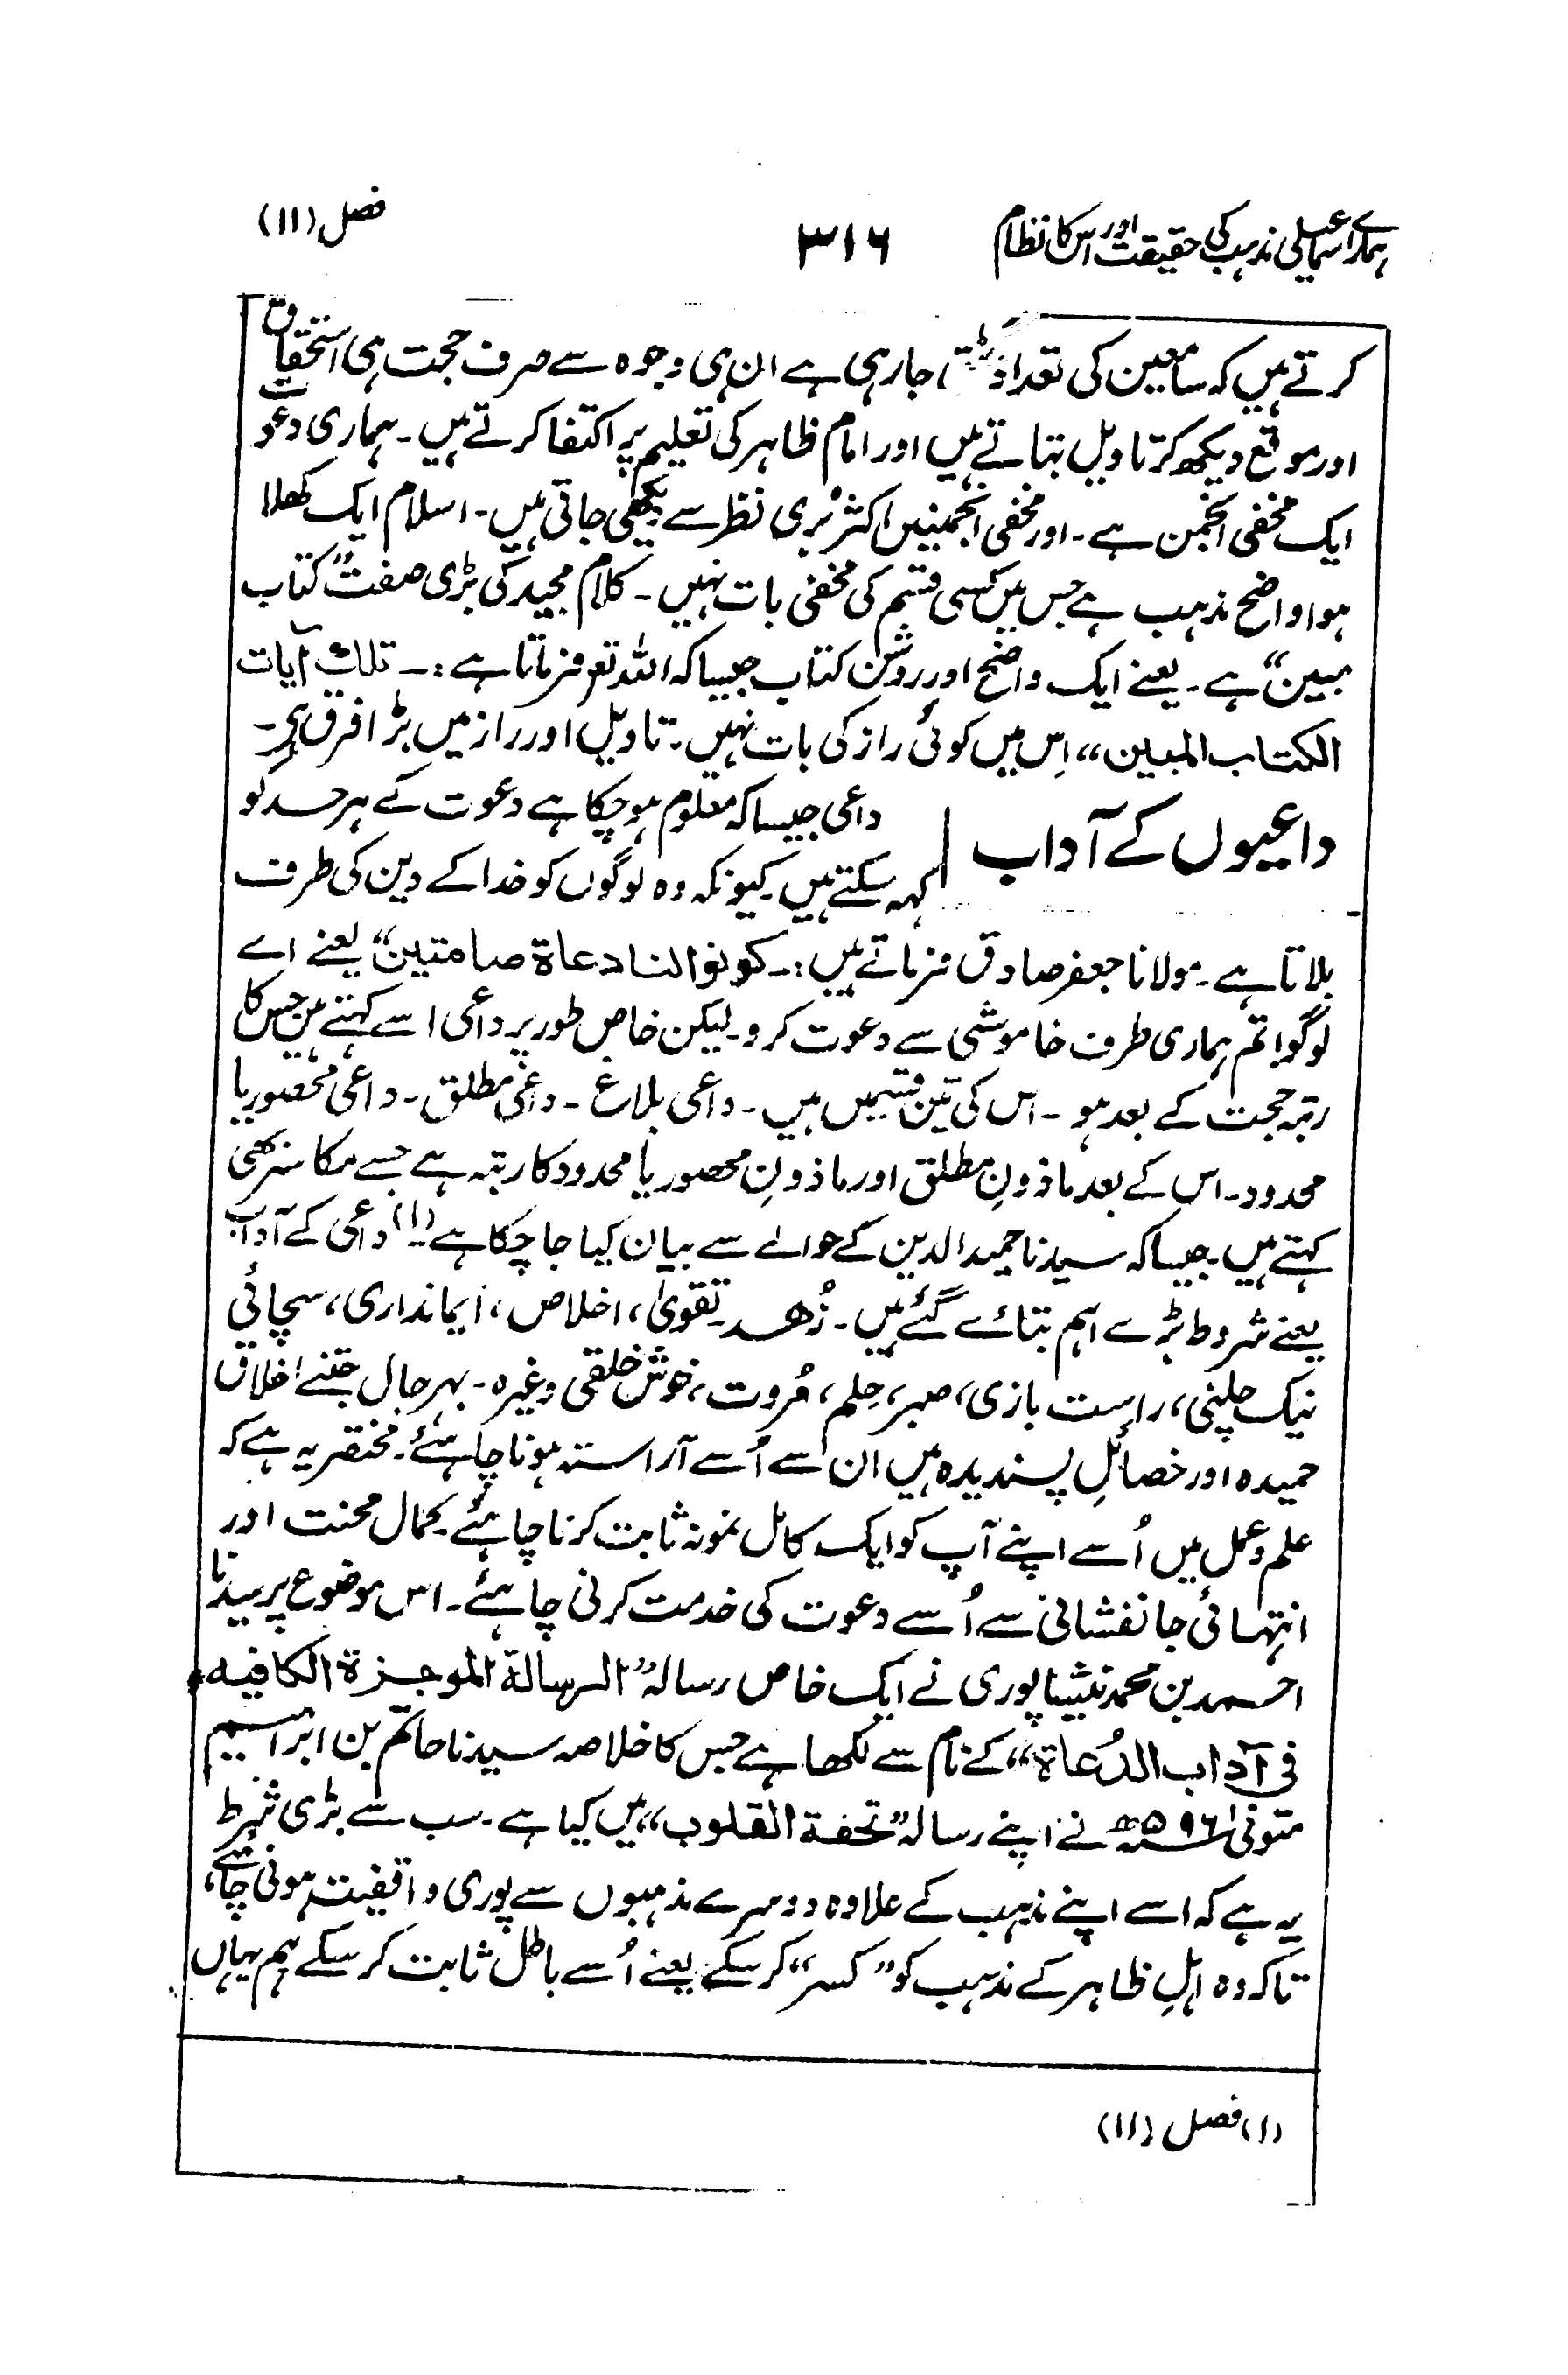 ہمارے اسماعیلی مذہب کی حقیقت اور اس کا نظام ۳۱۶ فصل (۱۱)
کرتے ہیں کہ سامعین کی تعداد جا رہی ہے ان ہی وجوہ سے صرف حجت ہی استحقاق
اور موقع دیکھ کر تاویل بتاتے ہیں اور امام ظاہر کی تعلیم پر اکتفا کرتے ہیں ۔ ہماری دعوت
ایک مخفی انجمن ہے ۔ اور مخفی انجمنیں اکثر بُری نظر سے دیکھی جاتی ہیں ۔ اسلام ایک کھلا
ہوا واضح مذہب ہے جس میں کسی قسم کی مخفی بات نہیں ۔ کلام مجید کی بڑی صفت ”کتاب
مبین“ ہے ۔ یعنے ایک واضح اور روشن کتاب جیسا کہ اللہ تعہ فرماتا ہے :۔ تلک آیات
الکتاب المبین“ اِس میں کوئی راز کی بات نہیں ۔ تاویل اور راز میں بڑا فرق ہے ۔
داعیوں کے آداب | داعی جیسا کہ معلوم ہو چکا ہے دعوت کے ہر حد کو
کہہ سکتے ہیں ۔ کیونکہ وہ لوگوں کو خدا کے دین کی طرف
بلاتا ہے ۔ مولانا جعفر صادق فرماتے ہیں :۔ کونوا لنا دعاة صامتین“ یعنے اے
لوگو! تم ہماری طرف خاموشی سے دعوت کرو ۔ لیکن خاص طور پر داعی اسے کہتے ہیں جس کا
رتبہ حجت کے بعد ہو ۔ اس کی تین قسمیں ہیں ۔ داعی بلاغ ۔ داعی مطلق ۔ داعی محصور یا
محدود ۔ اس کے بعد ماذونِ مطلق اور ماذونِ محصور یا محدود کا رتبہ ہے جسے مکاسر بھی
کہتے ہیں ۔ جیسا کہ سیدنا حمید الدین کے حوالے سے بیان کیا جا چکا ہے ۔(۱) داعی کے آداب
یعنے شروط بڑے اہم بتائے گئے ہیں ۔ زُھد ۔ تقویٰ ، اخلاص ، ایمانداری ، سچائی
نیک چلنی ، راست بازی ، صبر ، حِلم ، مُروت ، خوش خلقی وغیرہ ۔ بہرحال جتنے اخلاق
حمیدہ اور خصائلِ پسندیدہ ہیں ان سے اُسے آراستہ ہونا چاہئے ۔ مختصر یہ ہے کہ
علم و عمل میں اُسے اپنے آپ کو ایک کامل نمونہ ثابت کرنا چاہئے ۔ کمال محنت اور
انتہائی جانفشانی سے اُسے دعوت کی خدمت کرنی چاہئے ۔ اس موضوع پر سیدنا
احمد بن محمد نیشاپوری نے ایک خاص رسالہ ”الرسالة الموجزة الکافیه
فی آداب الدُعاة“ کے نام سے لکھا ہے جس کا خلاصہ سیدنا حاتم بن ابراہیم
متوفیٰ ۵۹۶ھ نے اپنے رسالہ ”تحفة القلوب“ میں کیا ہے ۔ سب سے بڑی شرط
یہ ہے کہ اسے اپنے مذہب کے علاوہ دوسرے مذہبوں سے پوری واقفیت ہونی چاہئے ،
تاکہ وہ اہلِ ظاہر کے مذہب کو ”کسر“ کر سکے یعنے اُسے باطل ثابت کر سکے ہم یہاں
(۱) فصل (۱۱)